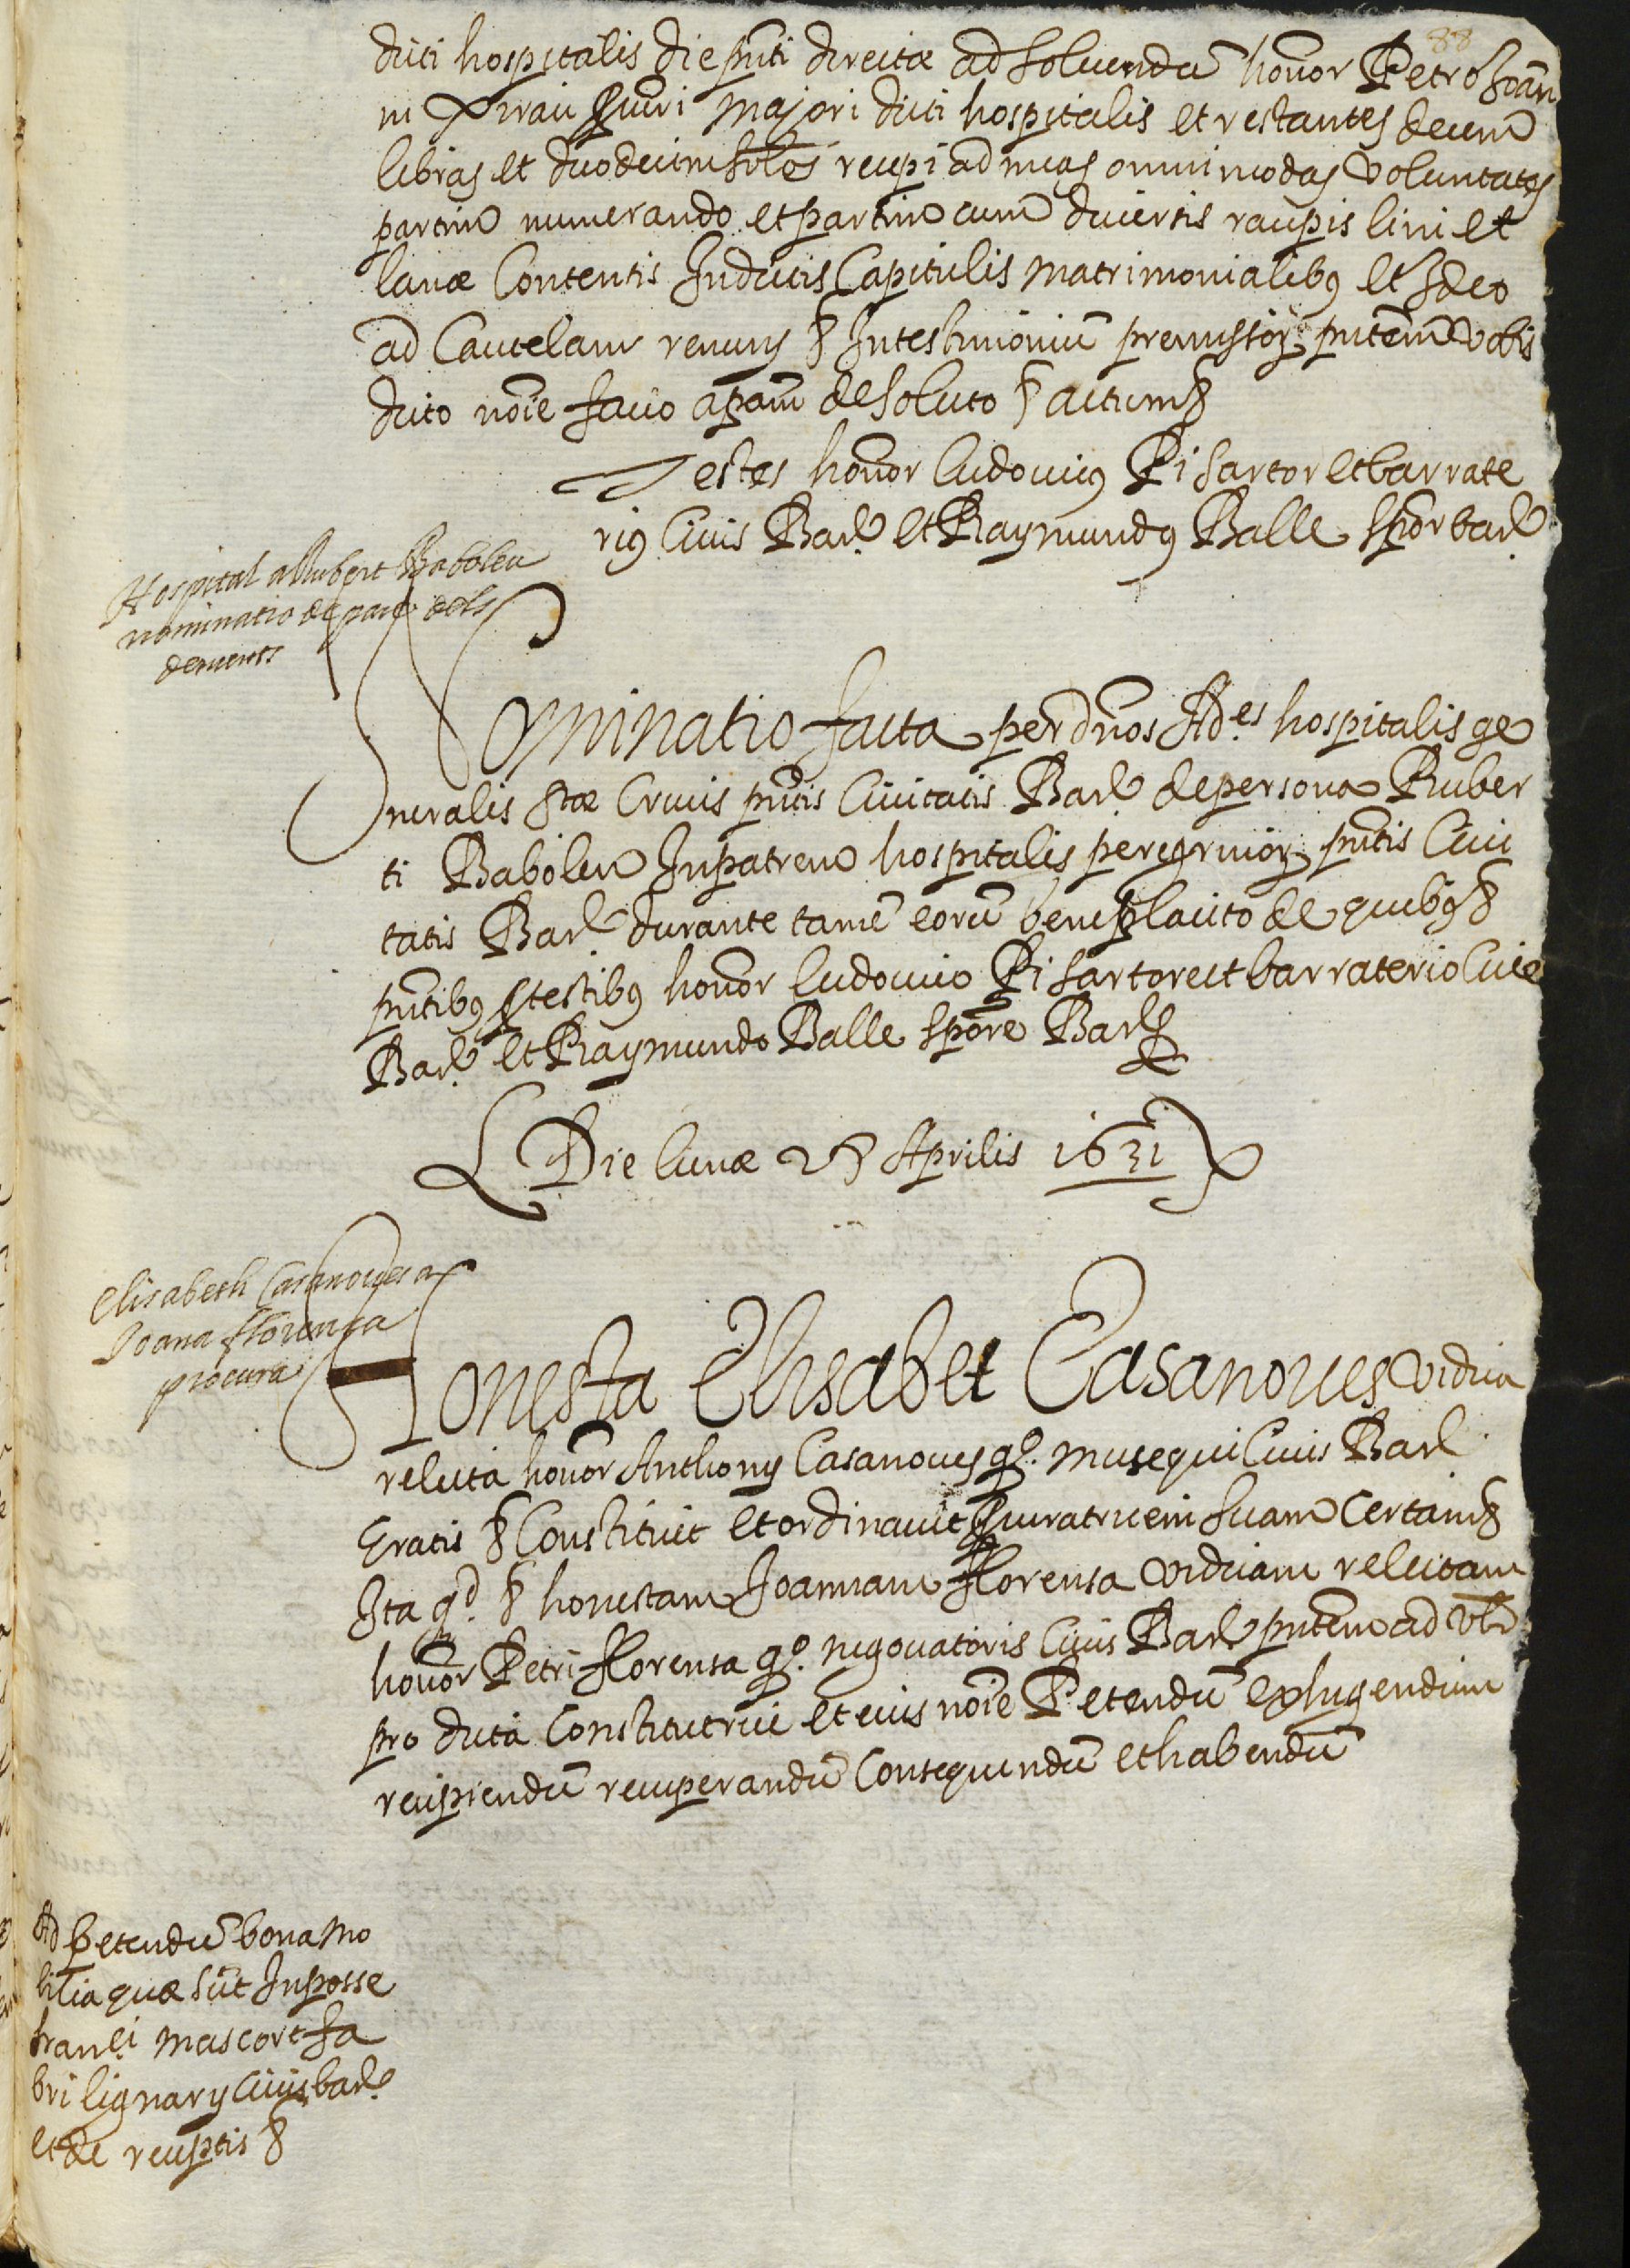 88
dicti hospitalis die pñti directæ ad solvendũ honor Petro Joan
ni Xirau pcuri majori dicti hospitalis et restantes decem
libras et duodecim solos recepi ad meas omnimodas voluntates
partim numerando et partim cum diversis raupis lini et
lanæ contentis Indictis Capitulis matrimonialibus et Ideo
ad Cautelam renuns & In testimoniũ premissor pñtem vobis
dicto noie facio apam de soluto & actum &
Testes honor ludovicus Pi sartor et barrate
rius Civis Bar et Raymundus Balle spor bar
Hospital a Rubert Baboleu
nominatio de pare dels
dements
Nominatio facta per dños Ad.es hospitalis ge
neralis Stæ Crucis pñtis Civitatis Bar de persona Ruber
ti Baboleu Inpatrem hospitalis peregrinor pñtis Civi
tatis Bar durante tamẽ eorũ beneplacito de quibus &
pñtibus p testibus honor ludovico Pi sartore et barraterio Cive
Bar et Raymundo Balle spore Bar &
Die lunæ 28 Aprilis 1631
Elisabeth Casanoves a
Joana florensa
procura
Honesta Elisabet Casanoves vidua
relicta honor Anthonij Casanoves qº. musequi Civis Bar
Gratis & Constituit et ordinavit pcuratricem suam certam &
Ita qd. & honestam Joannam florensa viduam relictam
honor Petri florensa qº. negociatoris Civis Bar pñtem ad vłr
pro dicta Constitutrice et eius noie Petendũ exhigendum
recipiendũ recuperandũ Consequendũ et habendũ
Ad petendũ bona mo
bilia quæ sũt In posse
franci mascort fa
bri lignarij Civis bar
et de receptis &